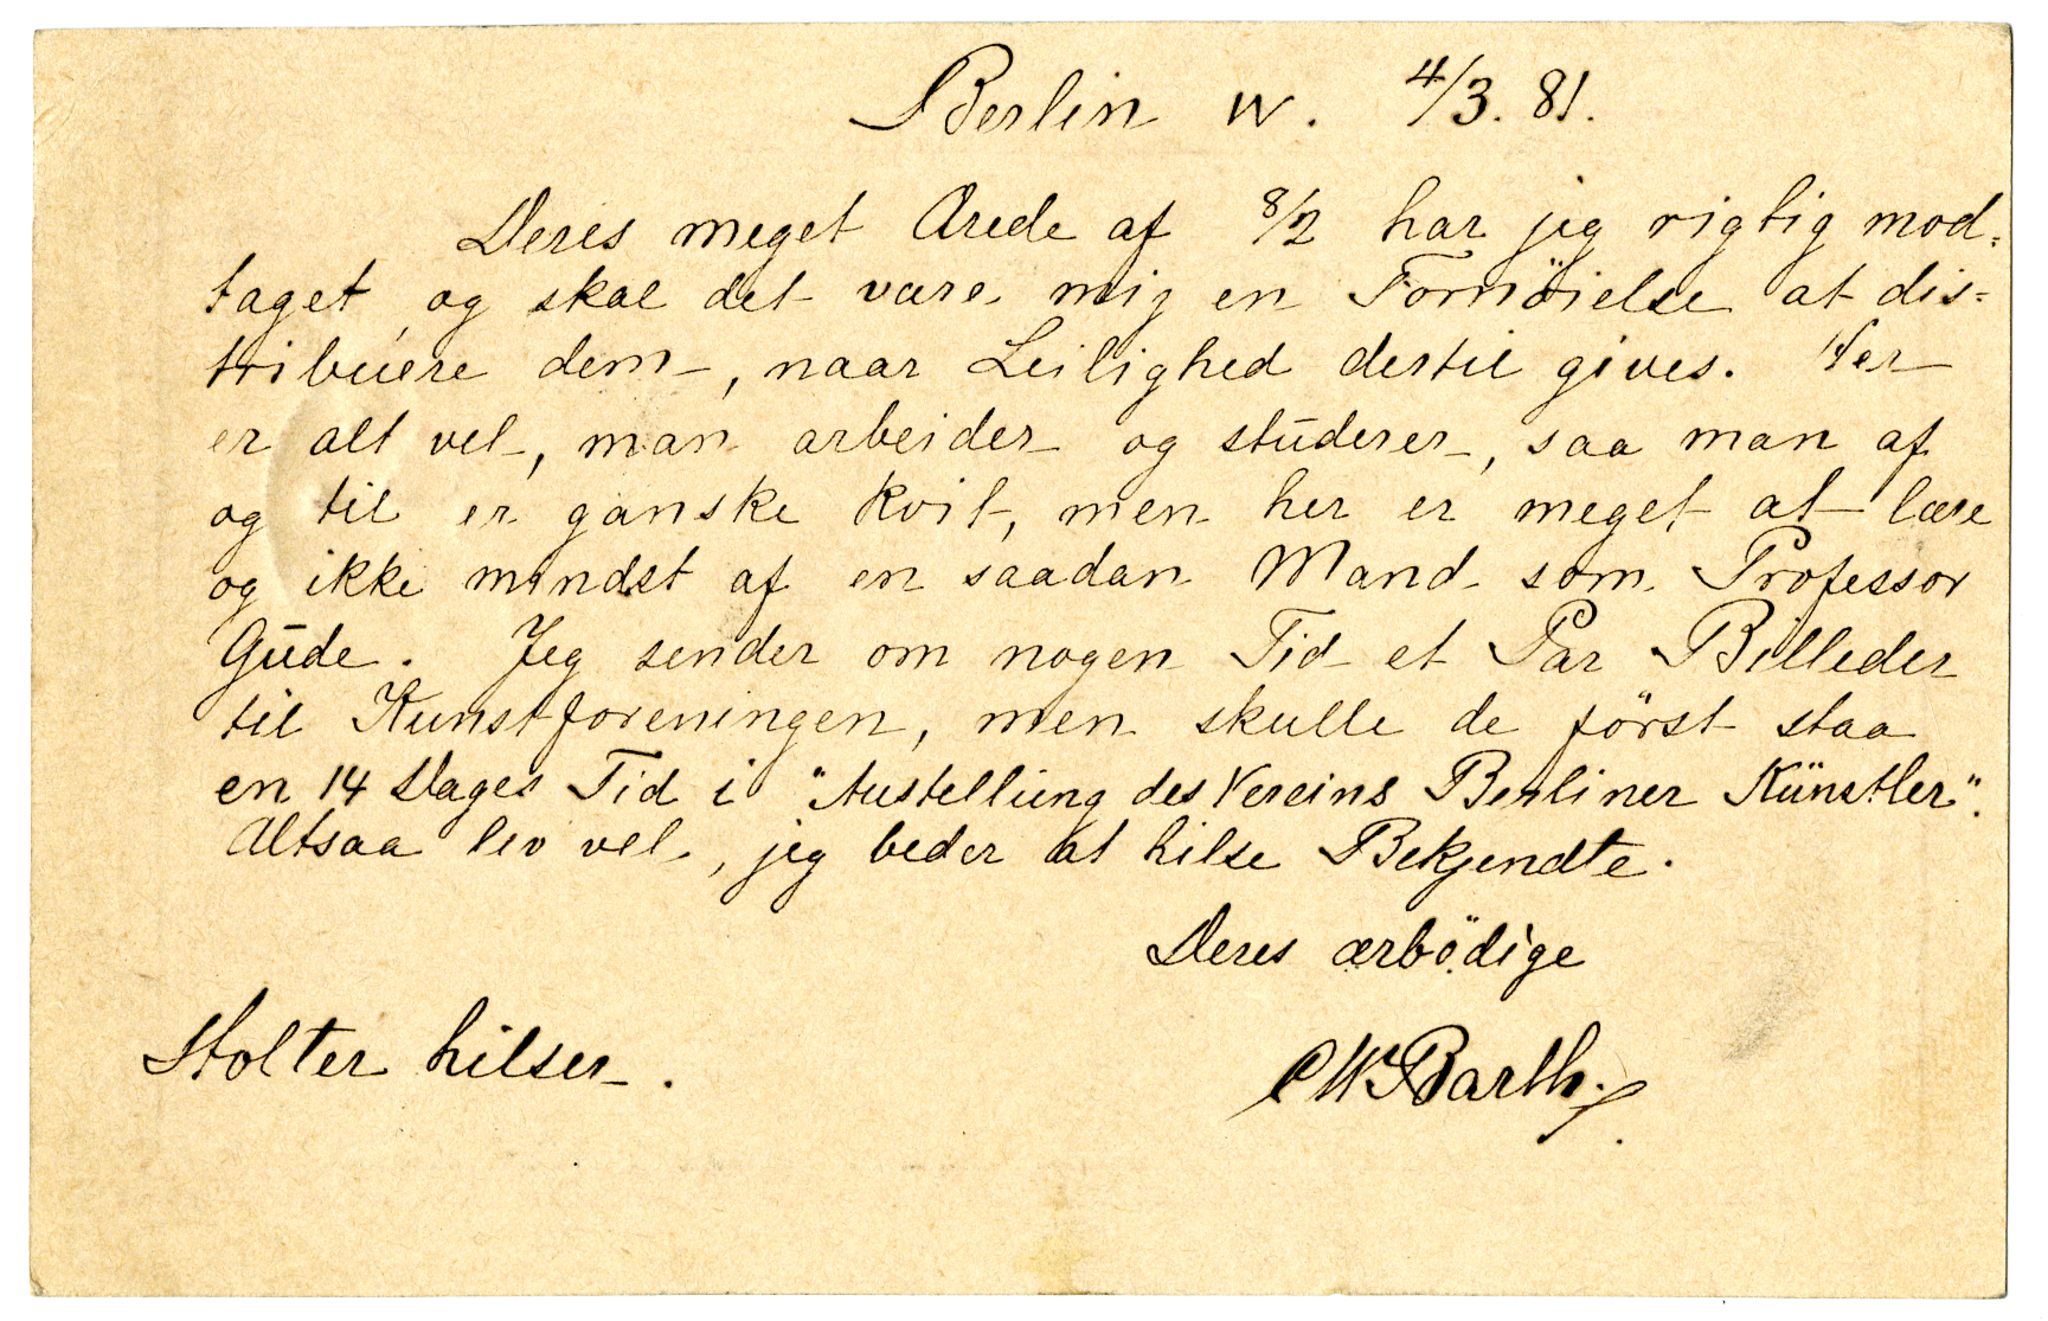 Berlin W. 4/3. 81.
Deres meget Ærede af 8/2 har jeg rigtig mod-
taget, og skal det være mig en Fornöielse at dis-
tribuere dem, naar Leilighed dertil gives. Her
er alt vel, man arbeider og studerer, saa man af
og til er ganske kvit, men her er meget at lære
og ikke mindst af en saadan Mand som Professor
Gude. Jeg sender om nogen Tid et Par Billeder
til Kunstforeningen, men skulle de först staa
en 14 Dages Tid i "Austellung des Vereins Berliner Künstler".
Altsaa lev vel, jeg beder at hilse Bekjendte.
Deres ærbödige
CWBarth.
Stolter hilser.